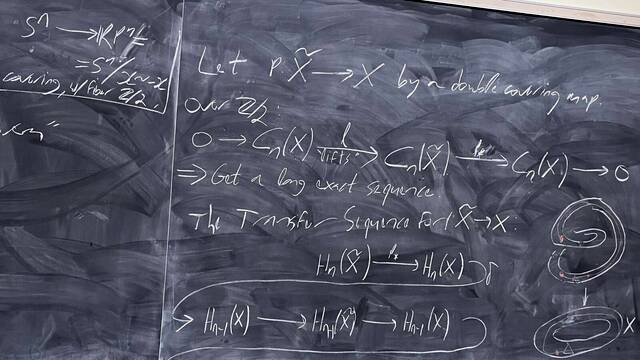 Sⁿ → RPⁿ =
= Sⁿ/x~-x
covering, w/ fiber Z/2.
Let p X̃ → X by a double covering map.
over Z/2:
0 → Cₙ(X) —l lifts→ Cₙ(X̃) —p*→ Cₙ(X) → 0
⇒ Get a long exact sequence.
The Transfer Sequence for X̃ → X.
Hₙ(X̃) —p*→ Hₙ(X)
→ Hₙ₋₁(X) → Hₙ₋₁(X̃) → Hₙ₋₁(X)
X